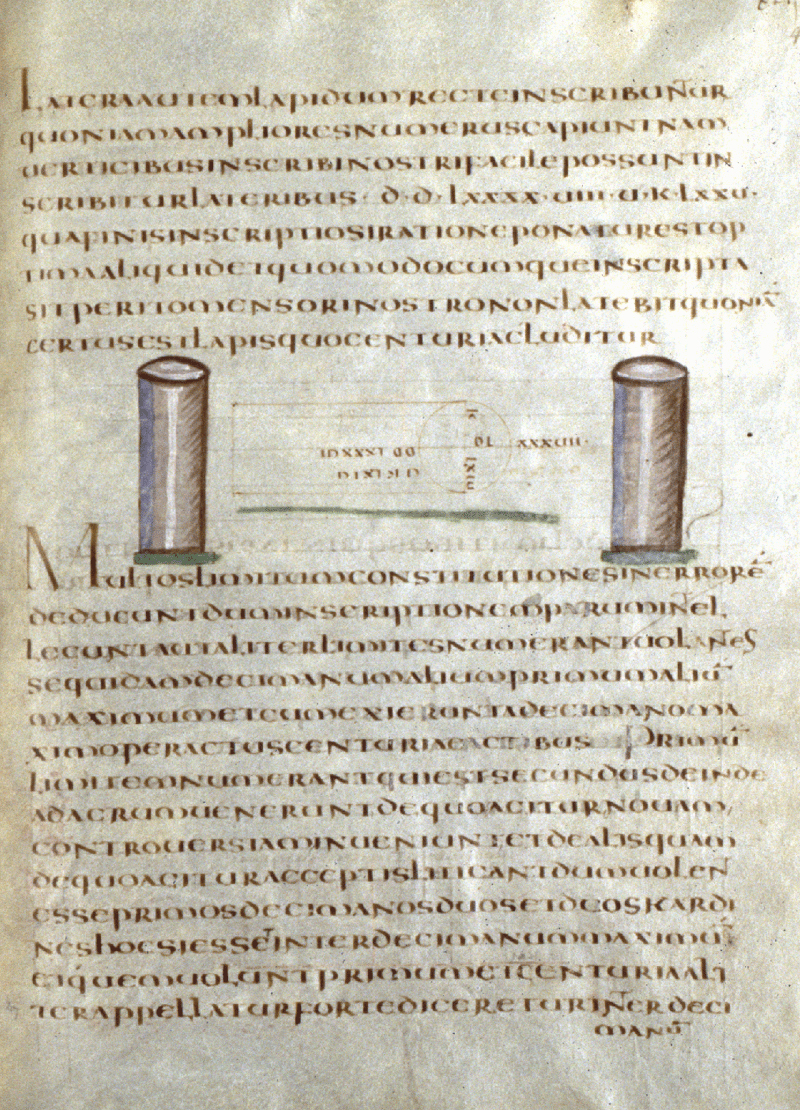 LATERAAUTEMLAPIDUMRECTEINSCRIBUNTUR
QUONIAMAMPLIORESNUMERUSCAPIUNTNAM
UERTICIBUSINSCRIBINOSTRIFACILEPOSSUNTIN
SCRIBITURLATERIBUS· D· D· LXXXX·UIII·U·K·LXXU·
QUAFINISINSCRIPTIOSIRATIONEPONATURESTOP
TIMAALIQUIDETQUOMODOCUMQUEINSCRIPTA
SITPERITOMENSORINOSTRONONLATEBITQUONIĀ
CERTUSESTLAPISQUOCENTURIACLUDITUR
MULTOSLIMITUMCONSTITUTIONESINERRORĒ
DEDUCUNTDUMINSCRIPTIONEMPARUMINEL
LEGUNTAUTALITERLIMITESNUMERANT
SEQUIDAMDECIMANUMALIUMPRIMUMALIŪ
MAXIMUMETCUMEXIERUNTADECIMANOMA
XIMOPERACTUSCENTURIAEACTIBUS PRIMŪ
LIMITEMNUMERANTQUIESTSECUNDUSDEINDE
ADAGRUMUENERUNTDEQUOAGITURNOUAM
CONTROUERSIAMINUENIUNTETDEALISQUAM
DEQUOAGITURACCEPTISLITIGANTDUMUOLEN
ESSEPRIMOSDECIMANOSDUOSETDEOSKARDI
NESHOCSIESSETINTERDECIMANUMMAXIMŪ
EIQUEMUOLUNTPRIMUMETCENTURIAALI
TERAPPELLATURFORTEDICERETURINTERDECI
MANŪ